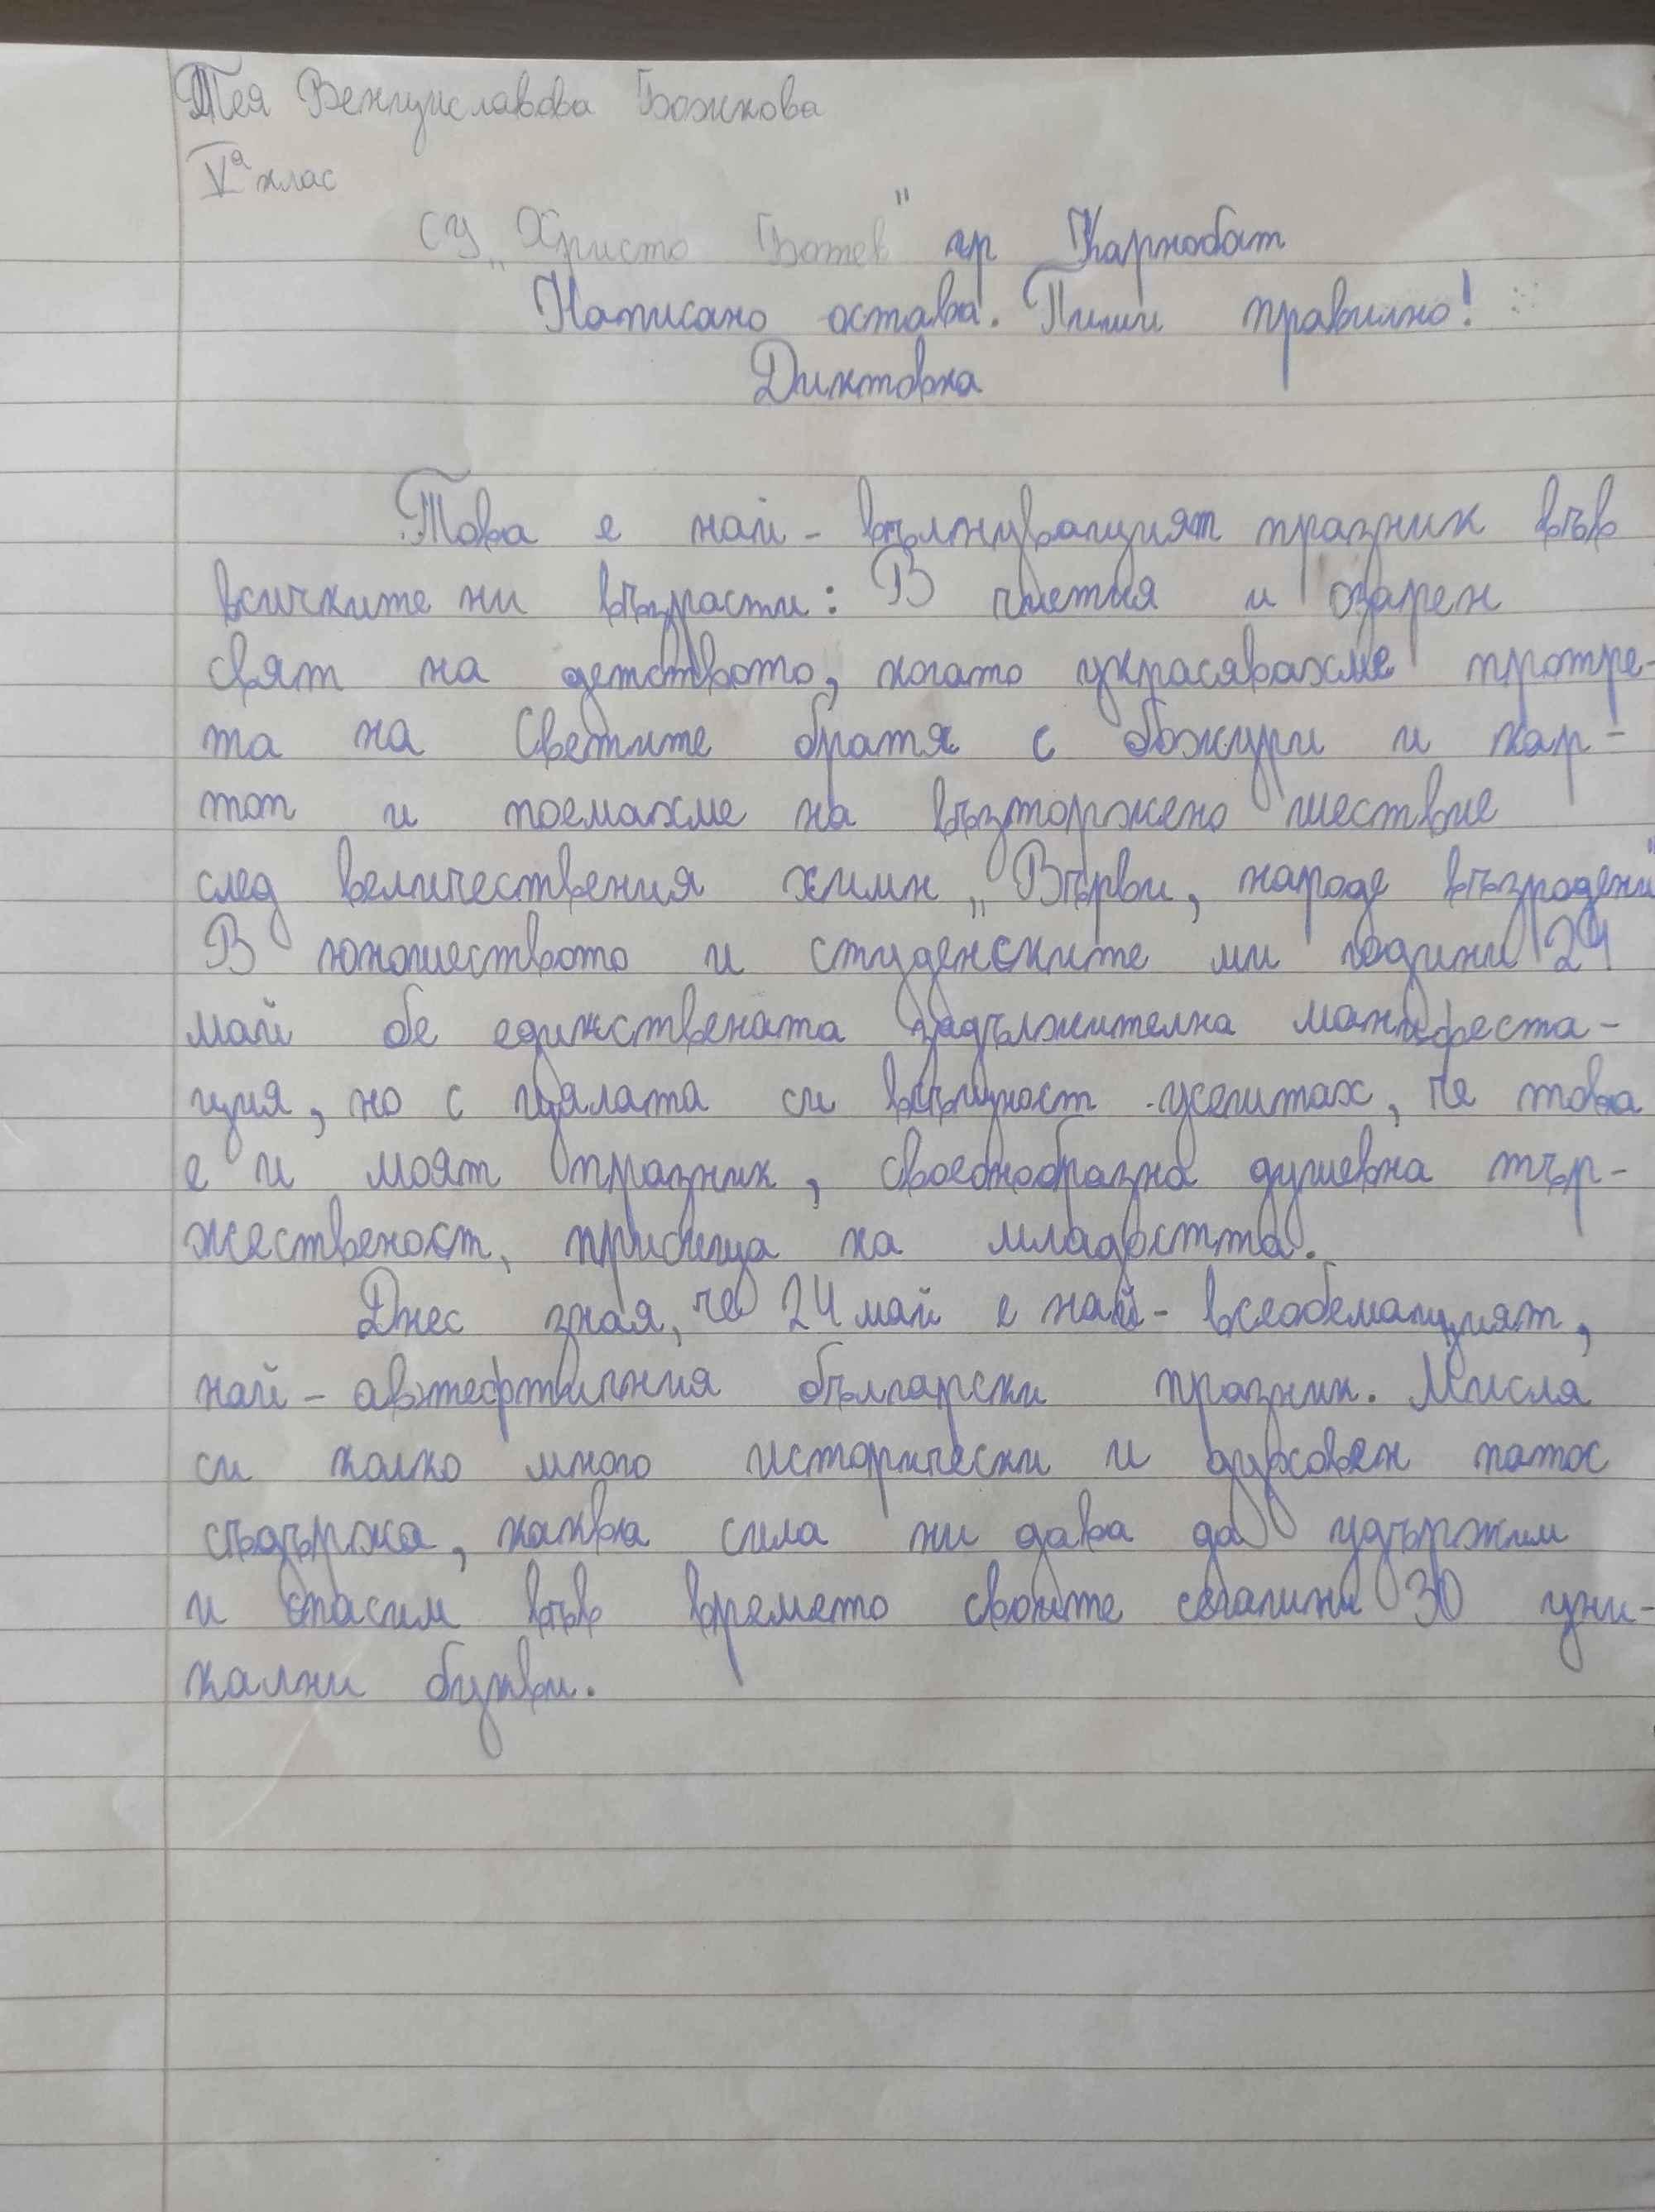 Тея Венциславова Божкова
Vа клас
СУ „Христо Ботев" гр Карнобат
Написано остава. Пиши правилно!
Диктовка
Това е най - вълнуващият празник във
всичките ни възрасти: В чистия и озарен
свят на детството, когато украсявахме протре-
та на Светите братя с божури и кар-
топ и поемахме на възторжено шествие
след величествения химн „Върви, народе възродени"
В юношеството и студенските ми години 24
май бе единствената задължителна манифеста-
ция, но с цялата си същност усещтах, че това
е и моят празник, своеобразна душевна тър-
жественост, присъща на младостта.
Днес зная, че 24 май е най - всеобемащият,
най - автефтичния български празник. Мисля
си колко много исторически и духовен патос
съдържа, каква сила ни дава да удържим
и спасим във времето своите сегашни 30 уни-
кални букви.